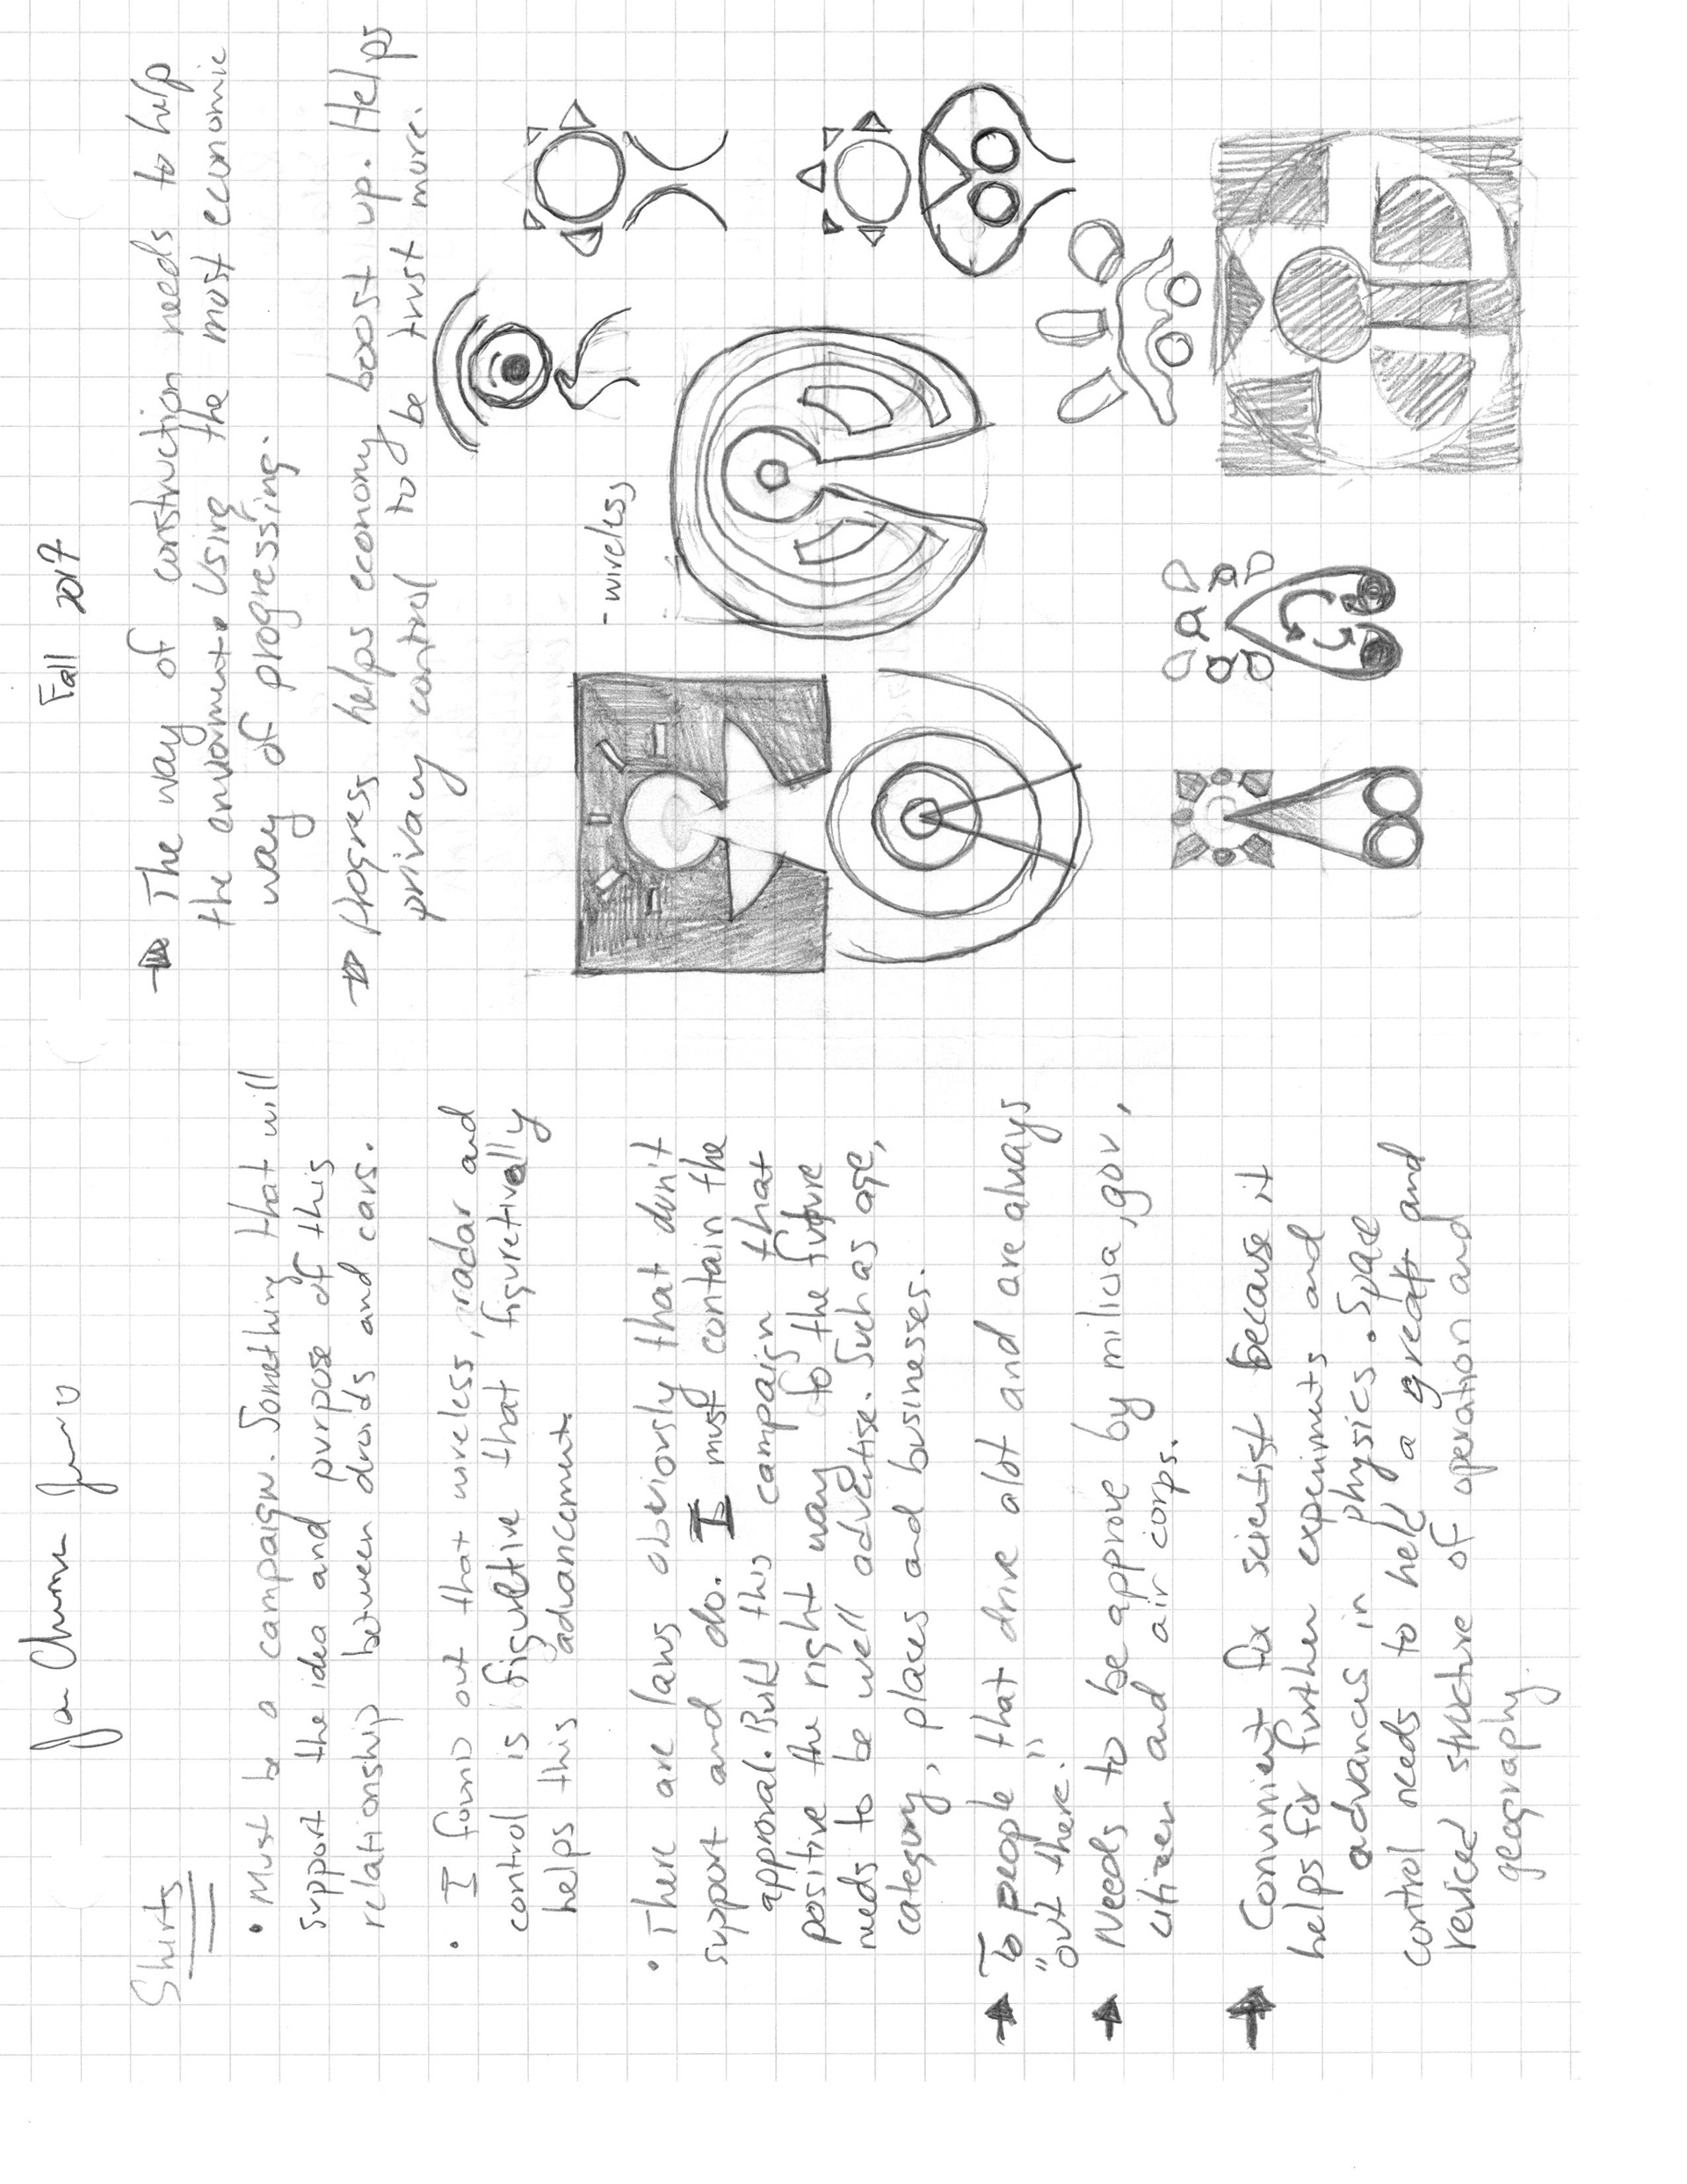 Fall 2017
Shirts
• Must be a campaign. Something that will
support the idea and purpose of this
relationship between droids and cars.
• I found out that wireless, radar and
control is figurative that figuretively
helps this advancement.
• There are laws obviously that don't
support and do. I must contain the
approval. Built this campaign that
positive the right way to the future
needs to be well advertise. Such as age,
category, places and businesses.
→ To people that drive alot and are always
"out there."
→ Needs to be approve by milicia, gov,
citizen and air corps.
→ Convinient for scientist because it
helps for further experiments and
advances in physics. Space
control needs to help a great and
reviced structure of operation and
geography.
→ The way of construction needs to help
the enviorment. Using the most economic
way of progressing.
→ Progress helps economy boost up. Helps
privacy control to be trust more.
- wireless